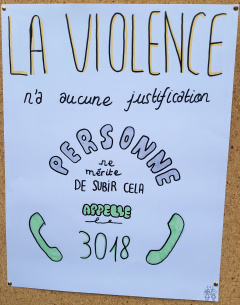 LA VIOLENCE
n'a aucune justification
PERSONNE
ne
mérite
DE SUBIR CELA
APPELLE
le
3018